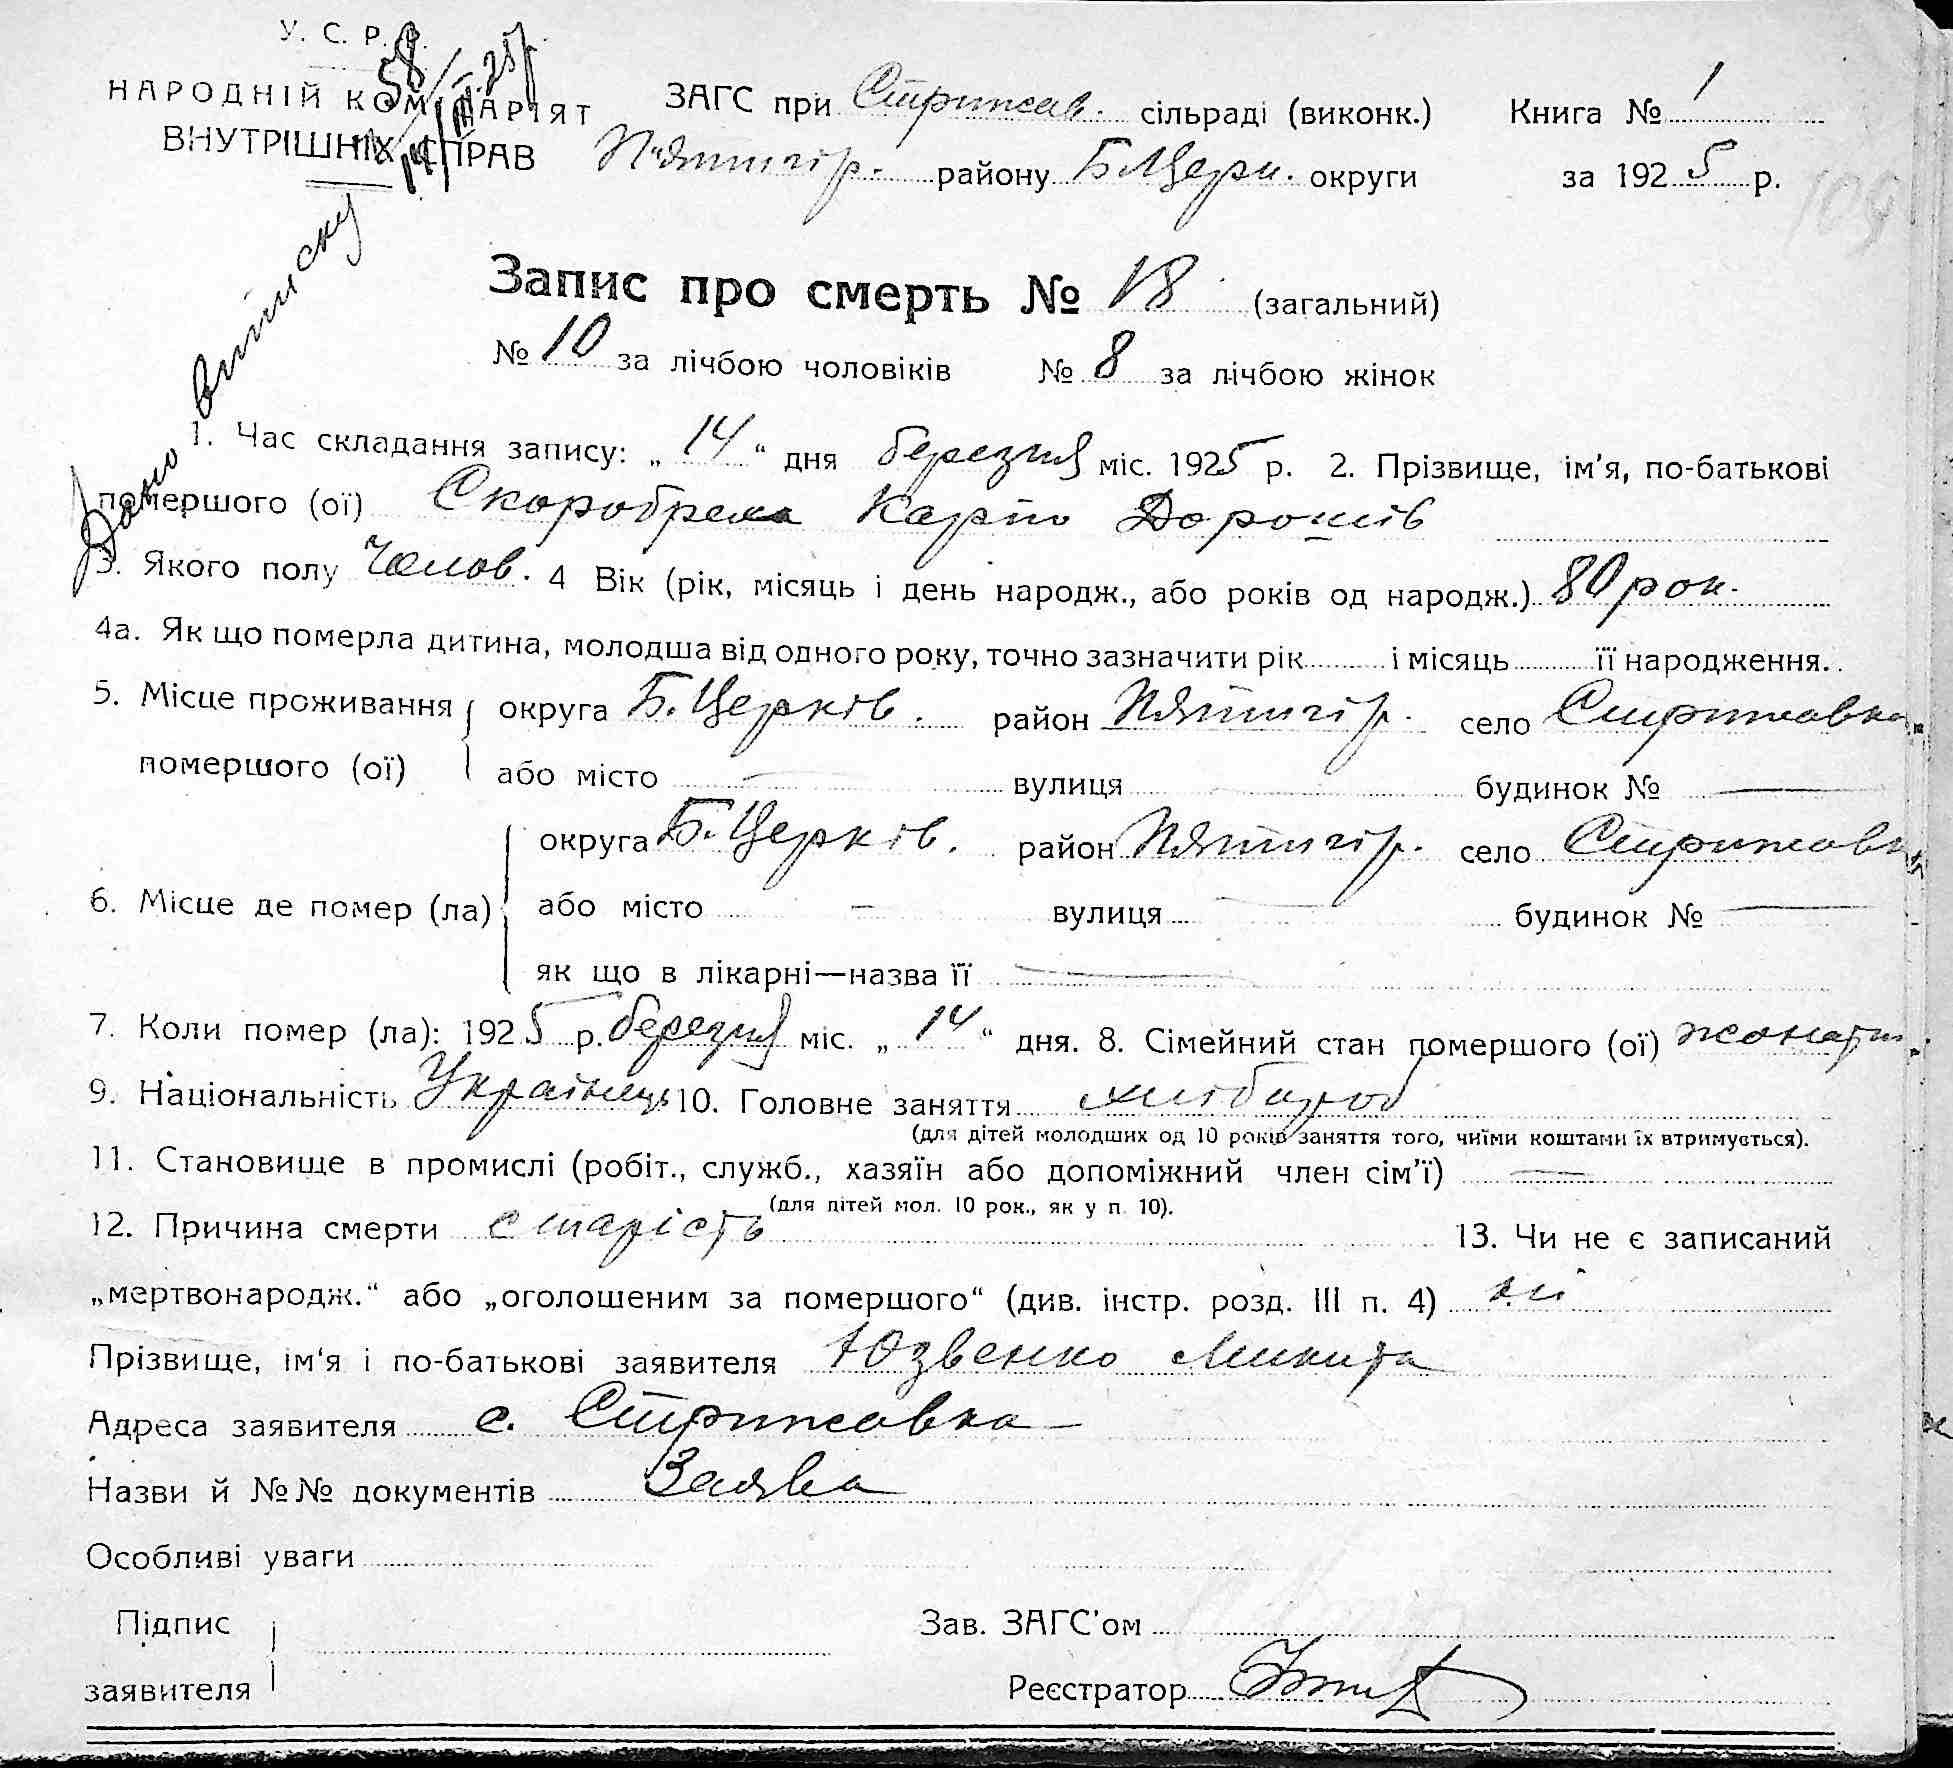 У. С. Р. Р.
НАРОДНІЙ КОМІСАРІЯТ
ВНУТРІШНІХ СПРАВ
ЗАГС при Стрижав. сільраді (виконк.) Книга № 1
П'ятигір. району Б.Церк. округи за 1925 р.
Дано виписку
Запис про смерть № 18 (загальний)
№ 10 за лічбою чоловіків № 8 за лічбою жінок
1. Час складання запису: „14“ дня березня міс. 1925 р. 2. Прізвище, ім'я, по-батькові
помершого (ої) Карпо Дорошів
3. Якого полу Чолов. 4 Вік (рік, місяць і день народж., або років од народж.) 80 рок.
4а. Як що померла дитина, молодша від одного року, точно зазначити рік і місяць її народження.
5. Місце проживання помершого (ої) округа Б. Церків. район Пятигір. село Стрижавка
або місто — вулиця — будинок № —
6. Місце де помер (ла) округа Б. Церків. район Пятигір. село Стрижавка
або місто — вулиця — будинок № —
як що в лікарні—назва її —
7. Коли помер (ла): 1925 р. березня міс. „14“ дня. 8. Сімейний стан помершого (ої) жонатий
9. Національність Українець 10. Головне заняття хлібороб
(для дітей молодших од 10 років заняття того, чиїми коштами їх втримується).
11. Становище в промислі (робіт., служб., хазяїн або допоміжний член сім'ї) —
(для дітей мол. 10 рок., як у п. 10).
12. Причина смерти старість 13. Чи не є записаний
„мертвонародж.“ або „оголошеним за помершого“ (див. інстр. розд. III п. 4) ні
Прізвище, ім'я і по-батькові заявителя Юзвенко Микита
Адреса заявителя с. Стрижавка
Назви й №№ документів Заява
Особливі уваги
Підпис заявителя
Зав. ЗАГС'ом
Реєстратор